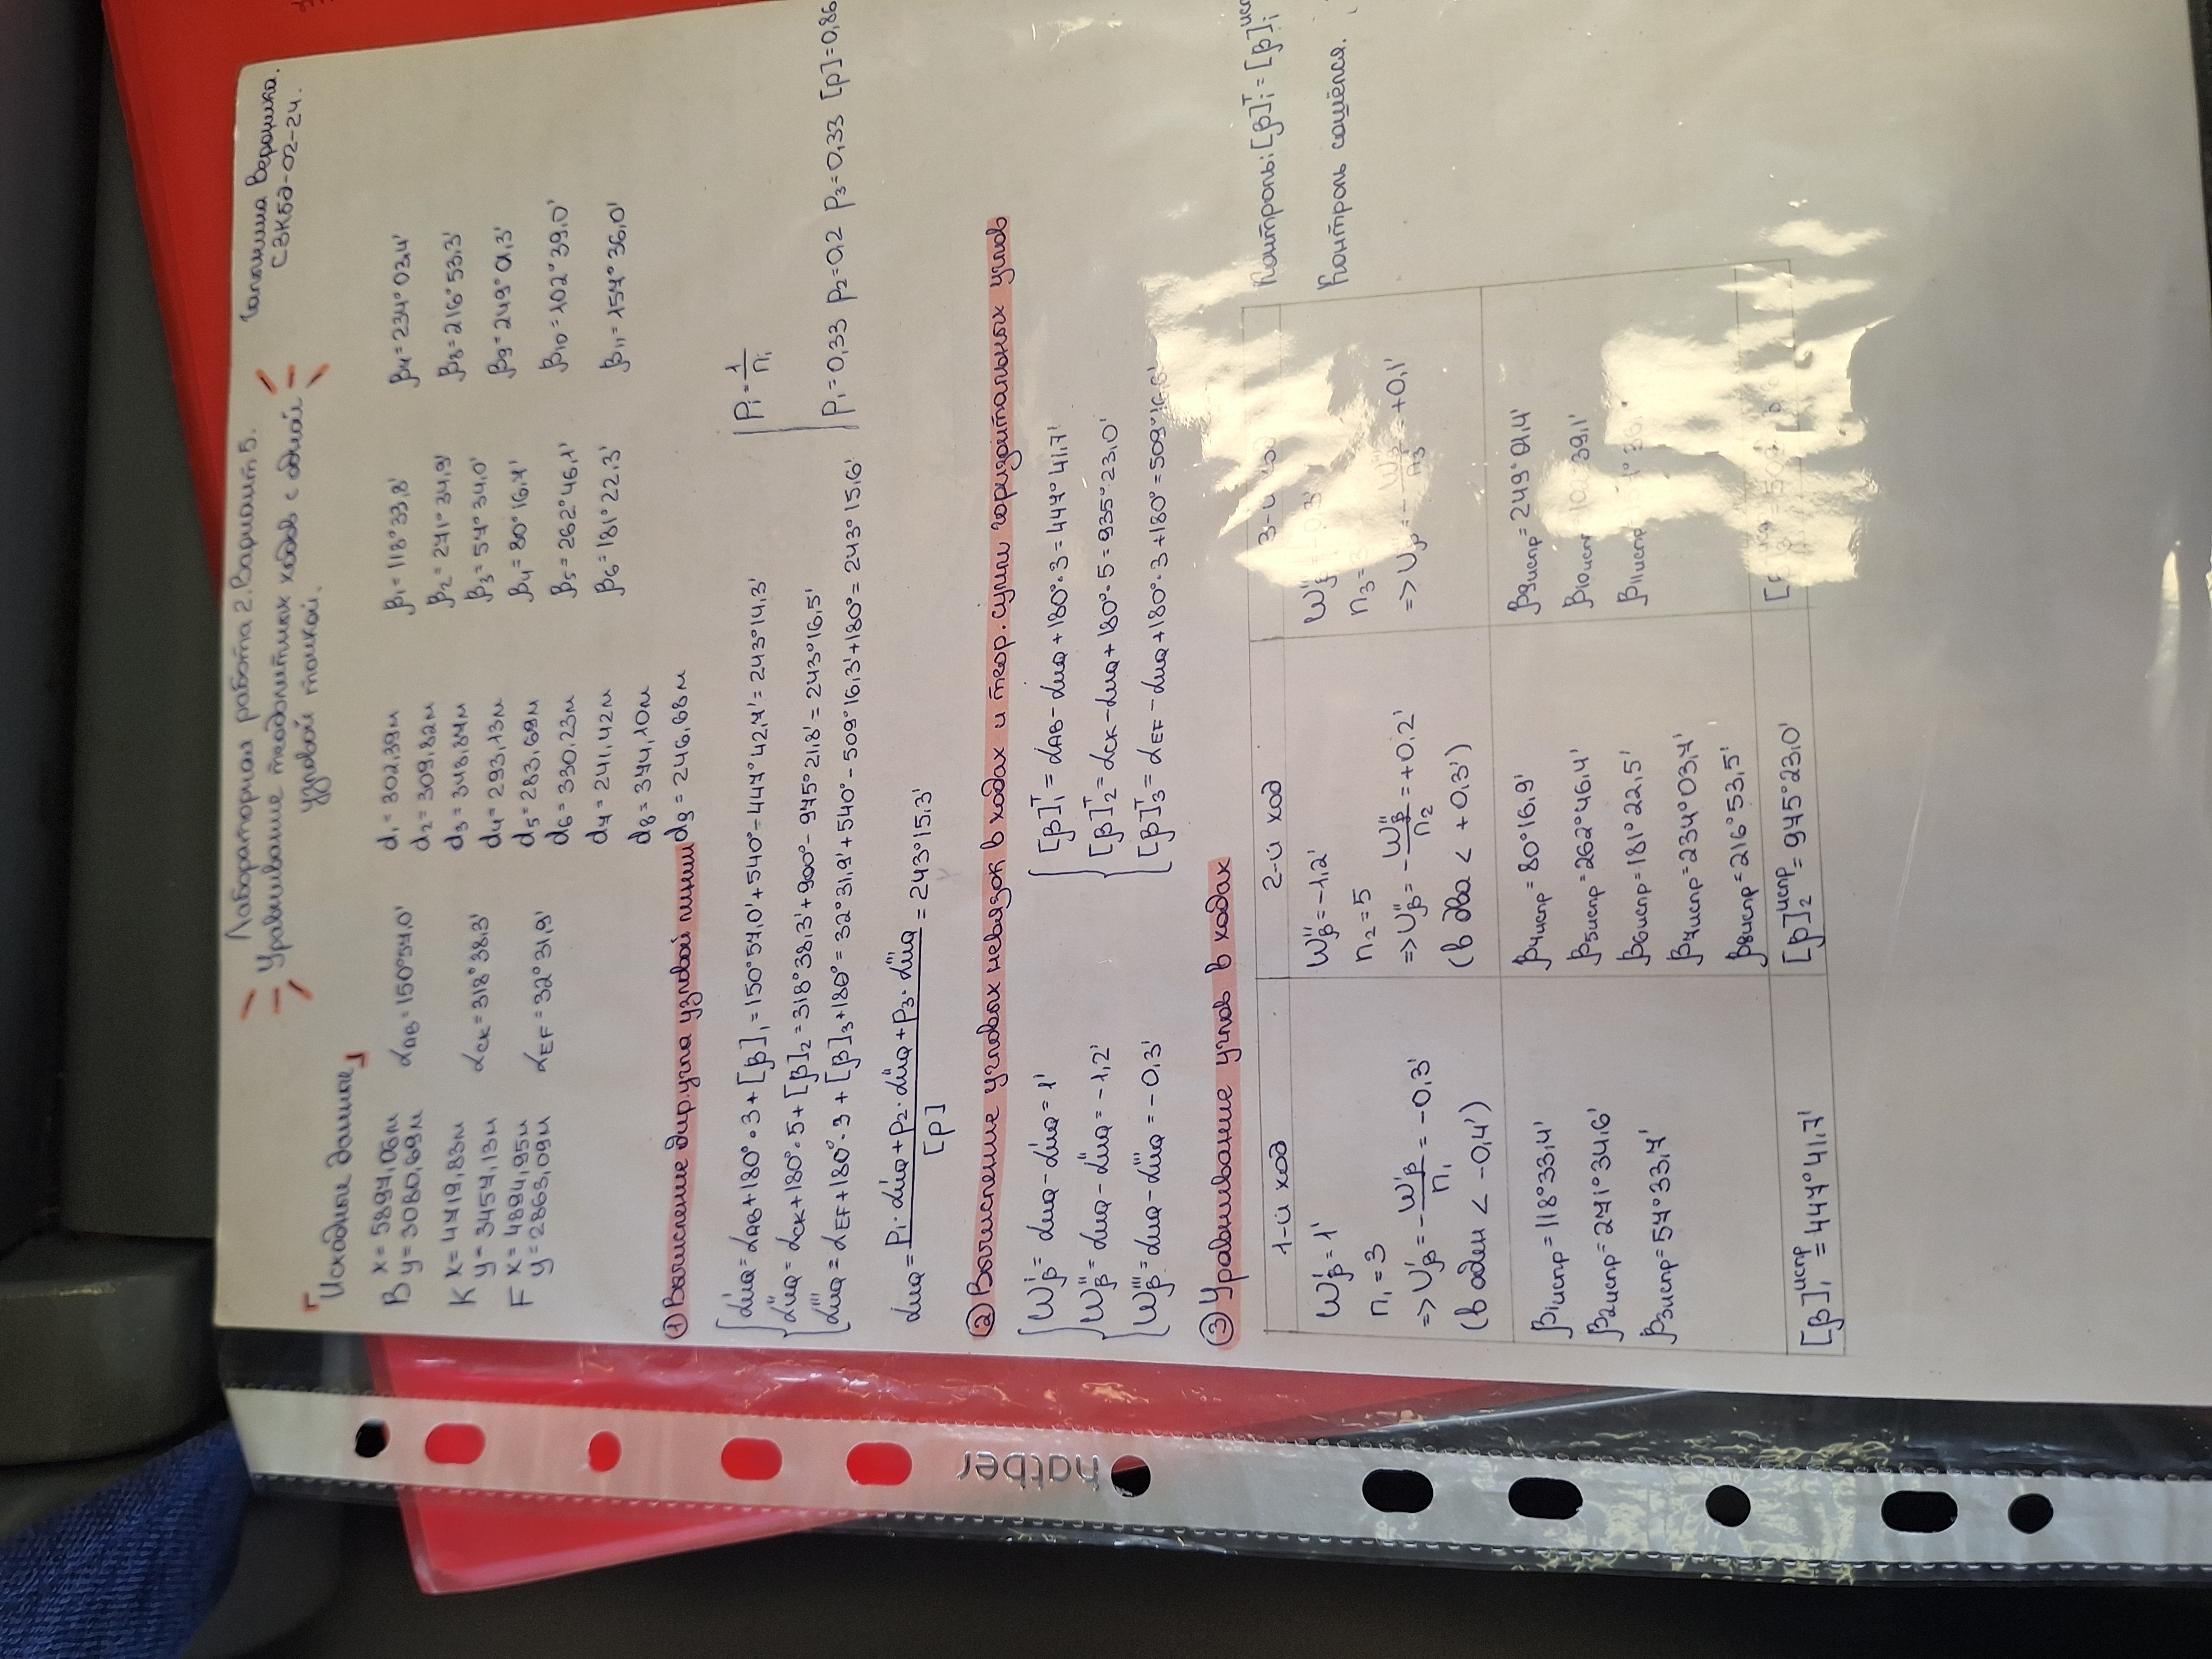 Лабораторная работа 2. Вариант 5.
Уравнивание теодолитных ходов с одной
узловой точкой.
Вероника.
СЗКБд-02-24.
Исходные данные
B x = 5894,06м
y = 3080,69м
K x = 4719,83м
y = 3457,13м
F x = 4894,95м
y = 2863,09м
αAB = 150°57,0'
αCK = 318°38,3'
αEF = 32°31,9'
d1 = 302,39м
d2 = 309,82м
d3 = 348,87м
d4 = 293,13м
d5 = 283,69м
d6 = 330,23м
d7 = 241,42м
d8 = 374,10м
d9 = 246,68м
β1 = 118°33,8'
β2 = 271°34,9'
β3 = 57°34,0'
β4 = 80°16,7'
β5 = 262°46,1'
β6 = 181°22,3'
β7 = 234°03,4'
β8 = 216°53,3'
β9 = 249°01,3'
β10 = 102°39,0'
β11 = 157°36,0'
① Вычисление дир. угла узловой линии
α'MQ = αAB + 180°·3 + [β]1 = 150°57,0' + 540° - 447°42,7' = 243°14,3'
α''MQ = αCK + 180°·5 + [β]2 = 318°38,3' + 900° - 975°21,8' = 243°16,5'
α'''MQ = αEF + 180°·3 + [β]3 + 180° = 32°31,9' + 540° - 509°16,3' + 180° = 243°15,6'
Pi = 1/ni
P1 = 0,33 P2 = 0,2 P3 = 0,33 [P] = 0,86
αMQ = (P1·α'MQ + P2·α''MQ + P3·α'''MQ)/[P] = 243°15,3'
② Вычисление угловых невязок в ходах и теор. сумм горизонтальных углов
W'β = αMQ - α'MQ = 1'
W''β = αMQ - α''MQ = -1,2'
W'''β = αMQ - α'''MQ = -0,3'
[β]1ᵀ = αAB - αMQ + 180°·3 = 447°41,7'
[β]2ᵀ = αCK - αMQ + 180°·5 = 935°23,0'
[β]3ᵀ = αEF - αMQ + 180°·3 + 180° = 509°16,6'
③ Уравнивание углов в ходах
1-й ход
2-й ход
3-й ход
W'β = 1'
n1 = 3
=> U'β = -W'β/n1 = -0,3'
(в один < -0,4')
W''β = -1,2'
n2 = 5
=> U''β = -W''β/n2 = +0,2'
(в два < +0,3')
n3 = 3
=> U'''β = -W'''β/n3 = +0,1'
β1испр = 118°33,4'
β2испр = 271°34,6'
β3испр = 57°33,7'
β4испр = 80°16,9'
β5испр = 262°46,4'
β6испр = 181°22,5'
β7испр = 234°03,7'
β8испр = 216°53,5'
β9испр = 249°01,4'
β10испр = 102°39,1'
β11испр
[β]1испр = 447°41,7'
[β]2испр = 975°23,0'
Контроль: [β]iᵀ = [β]iисп
Контроль сошёлся.
hatber